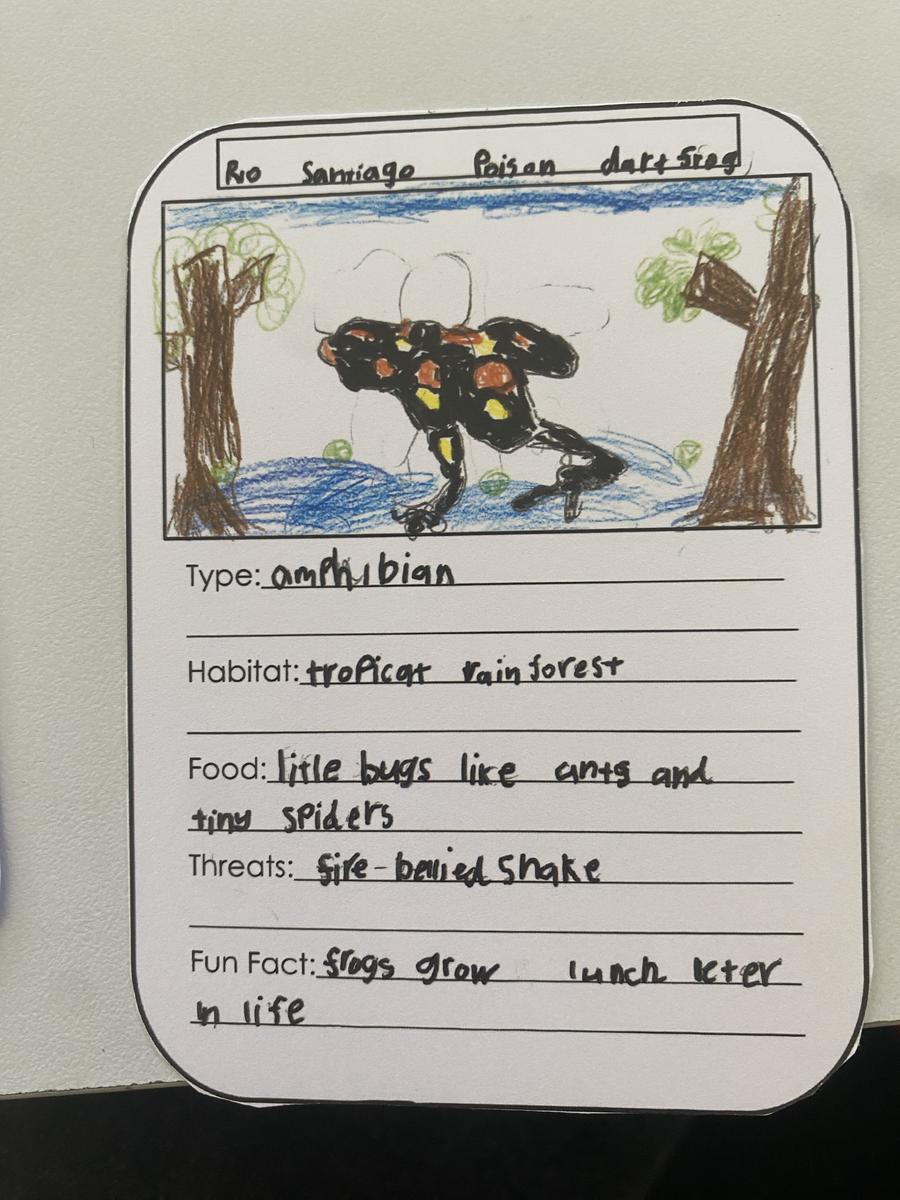 Rio Santiago Poison dart frog
Type: amphibian
Habitat: tropical rainforest
Food: litle bugs like ants and
tiny spiders
Threats: fire-bellied snake
Fun Fact: frogs grow lunch leter
in life